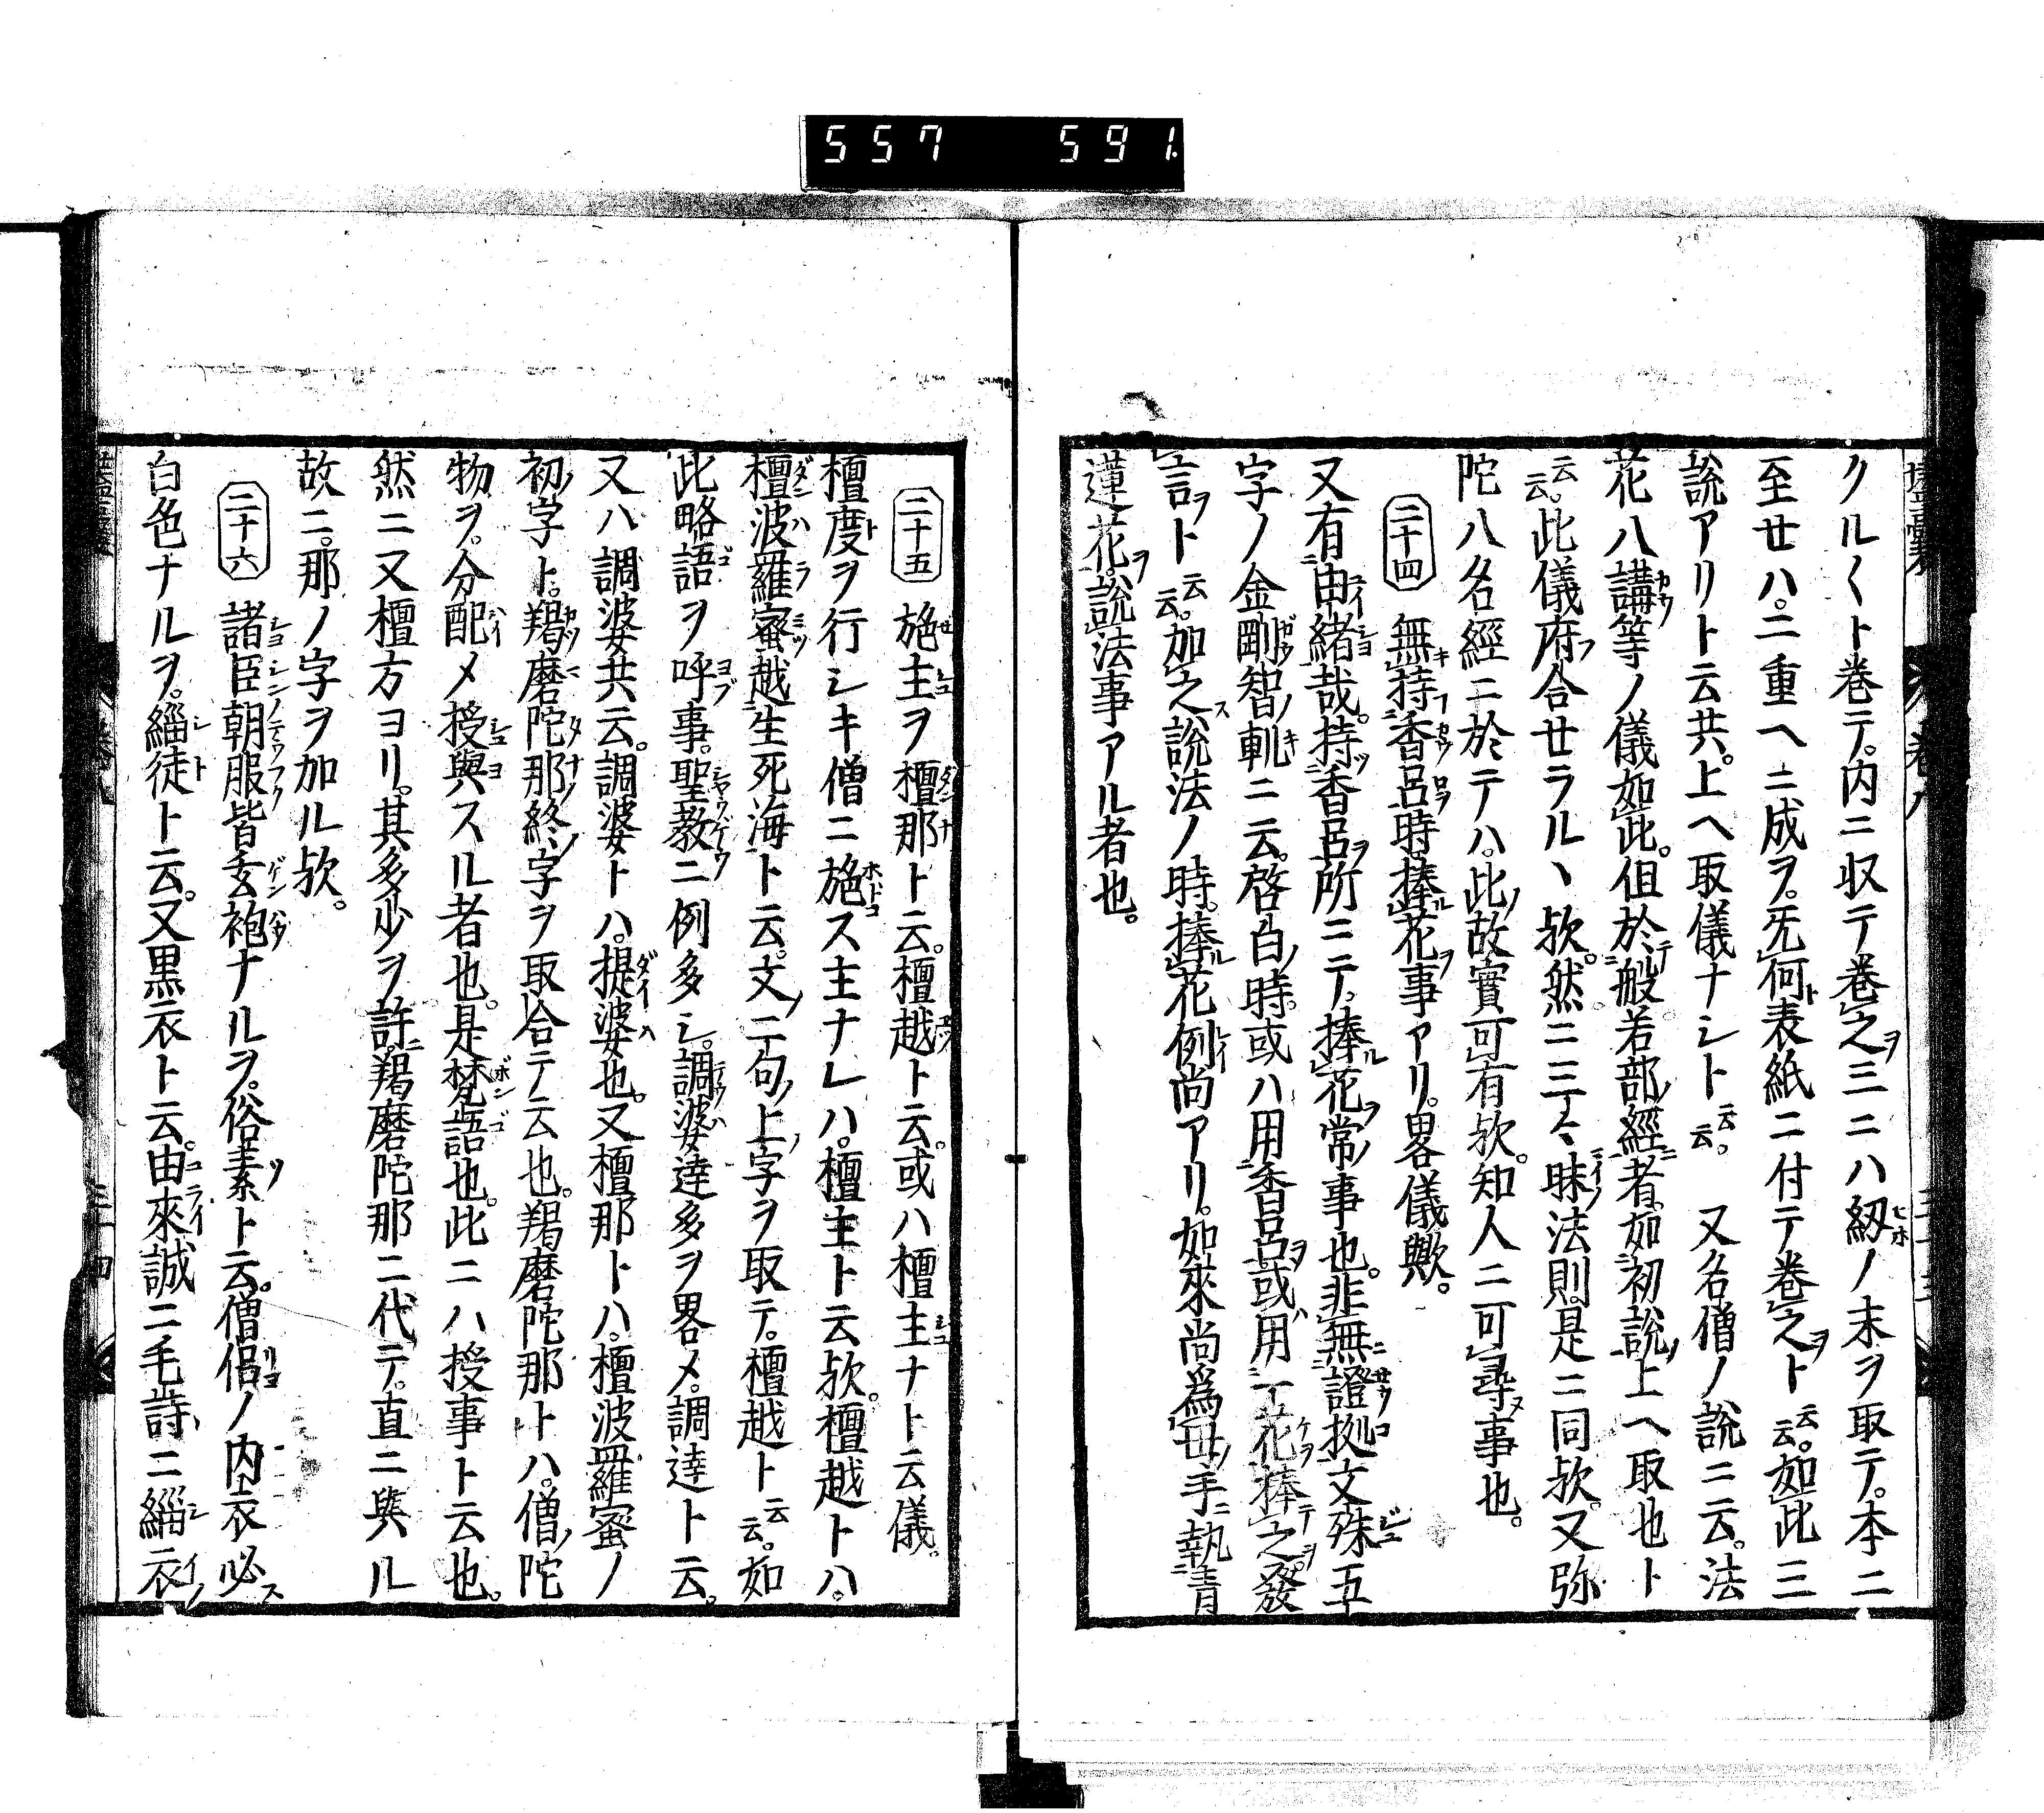 557 591
クル〱ト巻テ。内ニ収テ巻之三ニハ紉ノ末ヲ取テ。本ニ
至廿ハ。二重ヘニ成ヲ。旡何表紙ニ付テ巻之ト云云。如此三
説アリト云共。上ヘ取儀ナシト云云。又名僧ノ說ニ云。法
花八講等ノ儀如此。但於般若部經者。如初說上ヘ取也ト
云云。此儀府合せラルヽ欤。然ニ三々昧法則。是ニ同欤。又弥
陀八名經ニ於テハ。此故實可有欤。知人ニ可尋事也。
二十四 無持香呂時。捧花事アリ。畧儀歟。
又有由緒哉。持香呂所ニテ。捧花常事也。非無證拠文殊五
字ノ金剛智軌ニ云。啓白時。或ハ用香呂或用一花捧之發
言ト云云。加之說法ノ時。捧花例尚アリ。如來尚爲母手執青
蓮花說法事アル者也。
二十五 施主ヲ檀那ト云。檀越ト云。或ハ檀主ナト云儀。
檀度ヲ行シキ僧ニ施ス主ナレハ。檀主ト云欤。檀越トハ。
檀波羅蜜越生死海ト云。文ノ二句ノ上字ヲ取テ。檀越ト云云。如
此略語ヲ呼事。聖教ニ例多シ。調婆達多ヲ畧メ。調達ト云。
又ハ調婆共云。調婆トハ。提婆也。又檀那トハ。檀波羅蜜ノ
初字ト。羯磨陀那終字ヲ取合テ云也。羯磨陀那トハ。僧陀
物ヲ。分配メ授與スル者也。是梵語也。此ニハ授事ト云也。
然ニ又檀方ヨリ。其多少ヲ許。羯磨陀那ニ代テ。直ニ與ル
故ニ。那ノ字ヲ加ル欤。
二十六 諸臣朝服皆玄袍ナルヲ。俗素ト云。僧侶ノ内衣必
白色ナルヲ。緇徒ト云。又黒衣ト云。由來誠ニ毛詩ニ緇衣